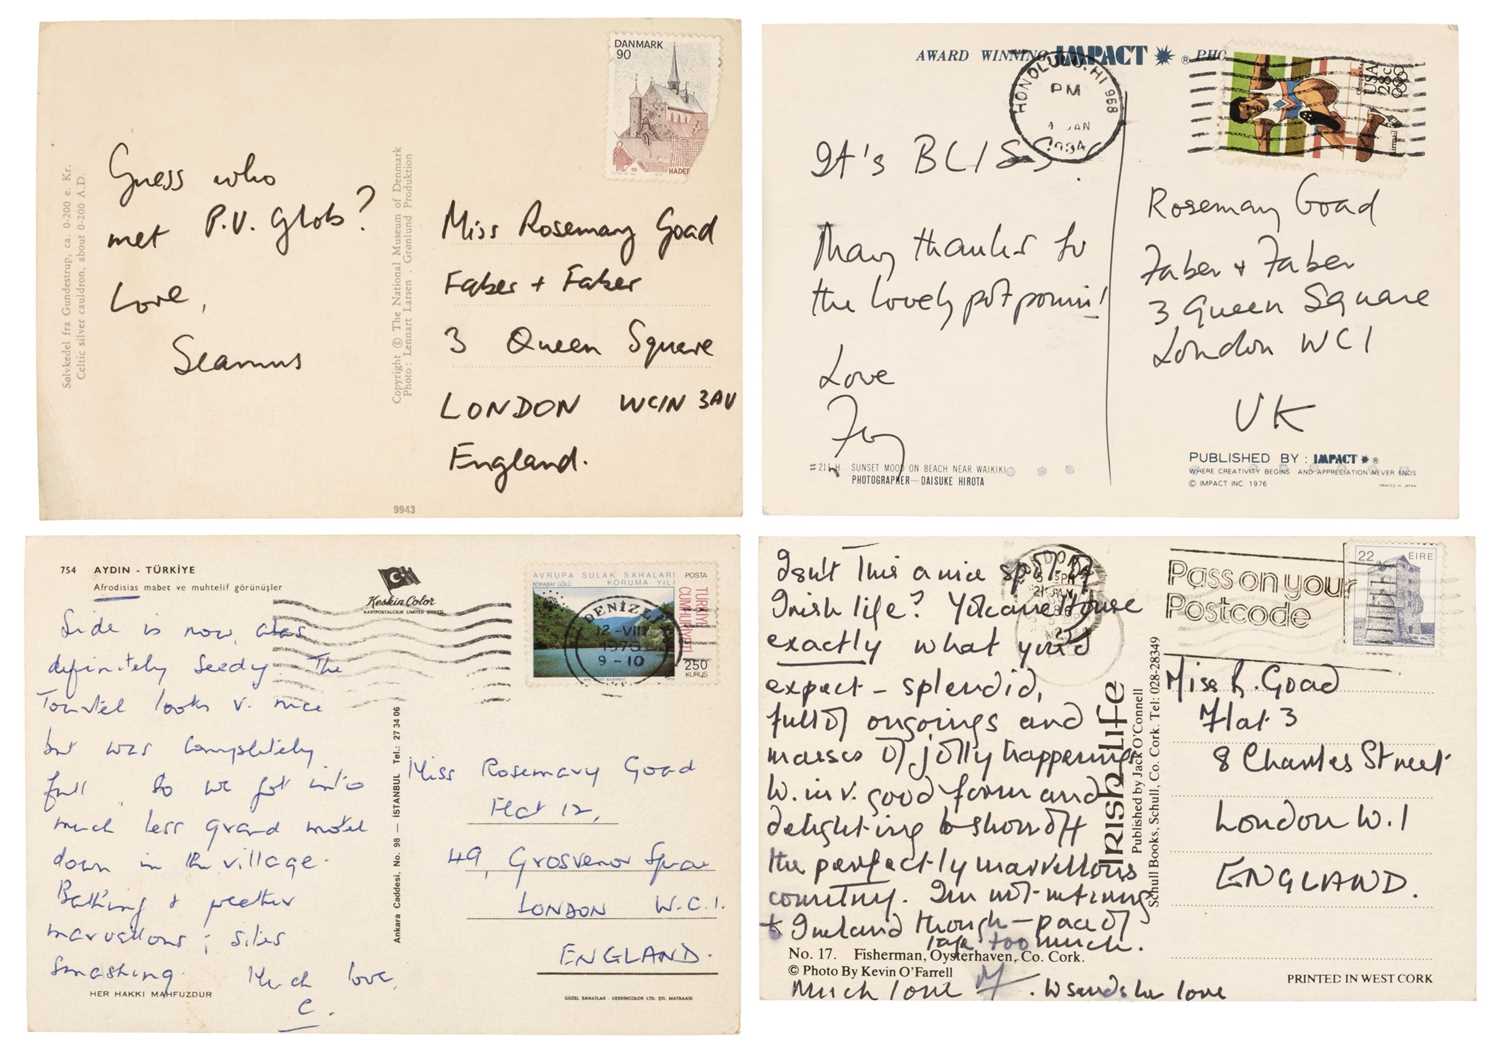 DANMARK
90
HADERSLEV
Guess who
met P.V. Glob?
Love,
Seamus
Sølvkedel fra Gundestrup, ca. 0-200 e. Kr.
Celtic silver cauldron, about 0-200 A.D.
Copyright © The National Museum of Denmark
Photo: Lennart Larsen . Grønlund Produktion
Miss Rosemary Goad
Faber + Faber
3 Queen Square
LONDON WC1N 3AU
England.
9943
AWARD WINNING IMPACT ® PHO
HONOLULU, HI 968
PM
JAN
1984
USA
28c
It's BLISS!
Many thanks for
the lovely potpourri!
Love
Rosemary Goad
Faber + Faber
3 Queen Square
London WC1
UK
#211-H SUNSET MOOD ON BEACH NEAR WAIKIKI
PHOTOGRAPHER—DAISUKE HIROTA
PUBLISHED BY: IMPACT ®
WHERE CREATIVITY BEGINS AND APPRECIATION NEVER ENDS
© IMPACT INC 1976
PRINTED IN JAPAN
754 AYDIN - TÜRKİYE
Afrodisias mabet ve muhtelif görünüşler
Keskin Color
KARTPOSTALCILIK LIMITED ŞİRKETİ
AVRUPA SULAK SAHALARI
KORUMA YILI
POSTA
TÜRKİYE
CUMHURİYETİ
250
KURUŞ
DENİZLİ
12-VIII
9-10
Side is now, alas
definitely seedy. The
Tourtel looks v. nice
but was completely
full. So we got into
much less grand motel
down in the village.
Bathing & weather
marvellous; sites
smashing. Much love,
C.
Ankara Caddesi, No. 98 — ISTANBUL Tel.: 27 34 06
Miss Rosemary Goad
Flat 12,
49, Grosvenor Square
LONDON W.C.1.
ENGLAND.
HER HAKKI MAHFUZDUR
GÜZEL SANATLAR - KESKİNCOLOR LTD. ŞTİ. MATBAASI
Isn't this a nice spot of
Irish life? Volcane House
exactly what you'd
expect – splendid,
full of ongoings and
masses of jolly happenings
W. in v. good form and
delighting to show off
the perfectly marvellous
country. I'm not moving
to Ireland though – pace of
life too much.
Much love M. W sends her love
Pass on your
Postcode
22 EIRE
IRISH LIFE
Published by Jack O'Connell
Schull Books, Schull, Co. Cork. Tel: 028-28349
Miss R. Goad
Flat 3
8 Charles Street
London W.1
ENGLAND.
No. 17. Fisherman, Oysterhaven, Co. Cork.
© Photo By Kevin O'Farrell
PRINTED IN WEST CORK